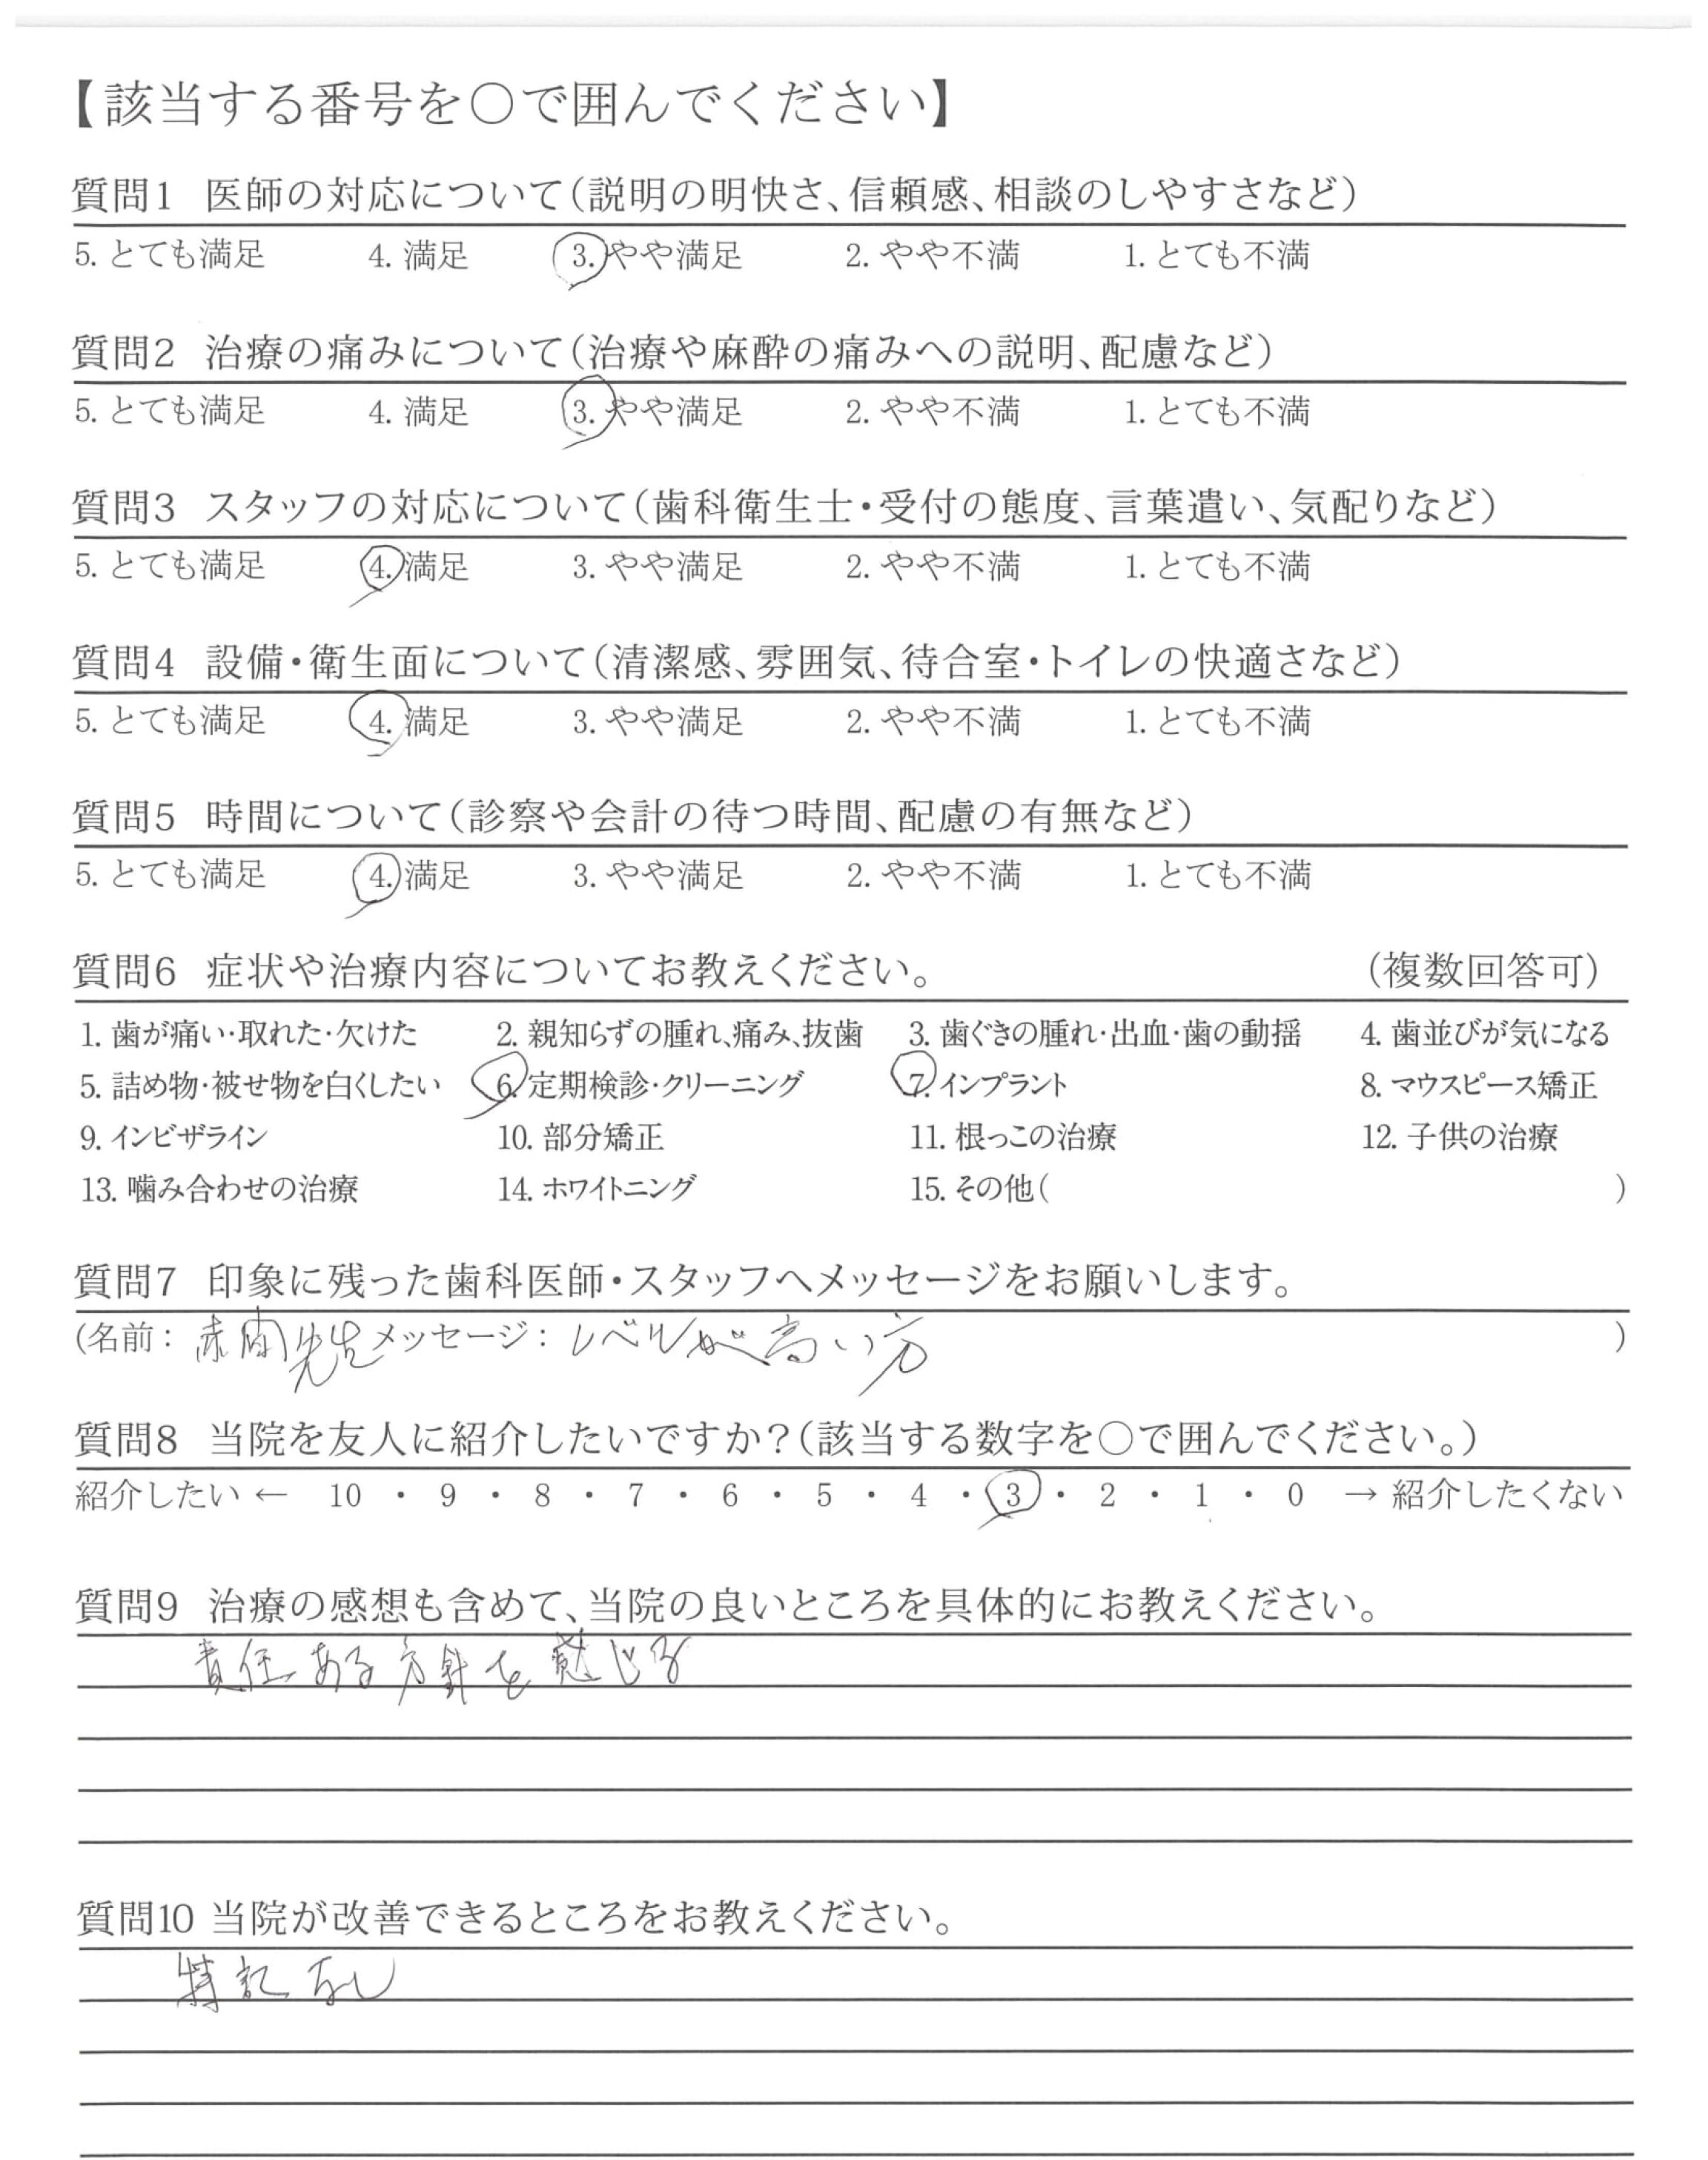 【該当する番号を〇で囲んでください】
質問1 医師の対応について(説明の明快さ、信頼感、相談のしやすさなど)
5. とても満足 4. 満足 3. やや満足 2. やや不満 1. とても不満
質問2 治療の痛みについて(治療や麻酔の痛みへの説明、配慮など)
5. とても満足 4. 満足 3. やや満足 2. やや不満 1. とても不満
質問3 スタッフの対応について(歯科衛生士・受付の態度、言葉遣い、気配りなど)
5. とても満足 4. 満足 3. やや満足 2. やや不満 1. とても不満
質問4 設備・衛生面について(清潔感、雰囲気、待合室・トイレの快適さなど)
5. とても満足 4. 満足 3. やや満足 2. やや不満 1. とても不満
質問5 時間について(診察や会計の待つ時間、配慮の有無など)
5. とても満足 4. 満足 3. やや満足 2. やや不満 1. とても不満
質問6 症状や治療内容についてお教えください。 (複数回答可)
1. 歯が痛い・取れた・欠けた 2. 親知らずの腫れ、痛み、抜歯 3. 歯ぐきの腫れ・出血・歯の動揺 4. 歯並びが気になる
5. 詰め物・被せ物を白くしたい 6. 定期検診・クリーニング 7. インプラント 8. マウスピース矯正
9. インビザライン 10. 部分矯正 11. 根っこの治療 12. 子供の治療
13. 噛み合わせの治療 14. ホワイトニング 15. その他( )
質問7 印象に残った歯科医師・スタッフへメッセージをお願いします。
(名前: 赤間先生 メッセージ: レベルが高い方 )
質問8 当院を友人に紹介したいですか?(該当する数字を〇で囲んでください。)
紹介したい ← 10 ・ 9 ・ 8 ・ 7 ・ 6 ・ 5 ・ 4 ・ 3 ・ 2 ・ 1 ・ 0 → 紹介したくない
質問9 治療の感想も含めて、当院の良いところを具体的にお教えください。
責任ある方針を感じる
質問10 当院が改善できるところをお教えください。
特記なし